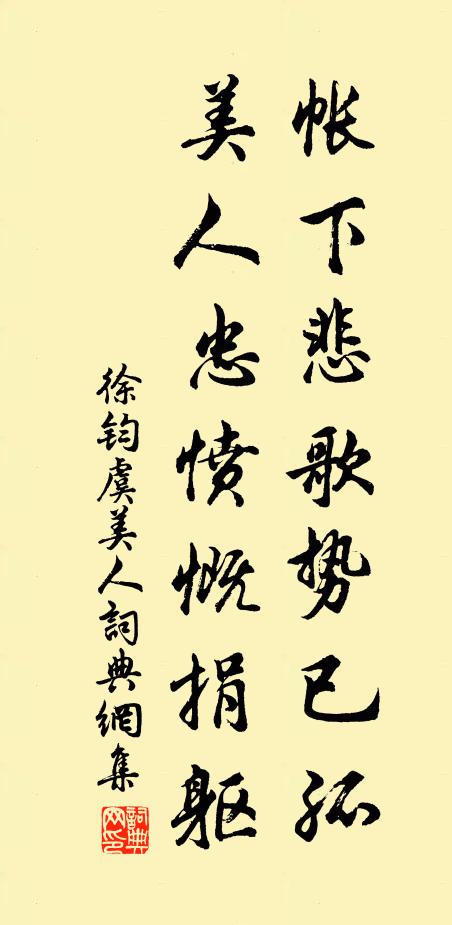 帐下悲歌势已孤
美人忠愤慨捐躯
徐钧虞美人詞典網集
詞典網印